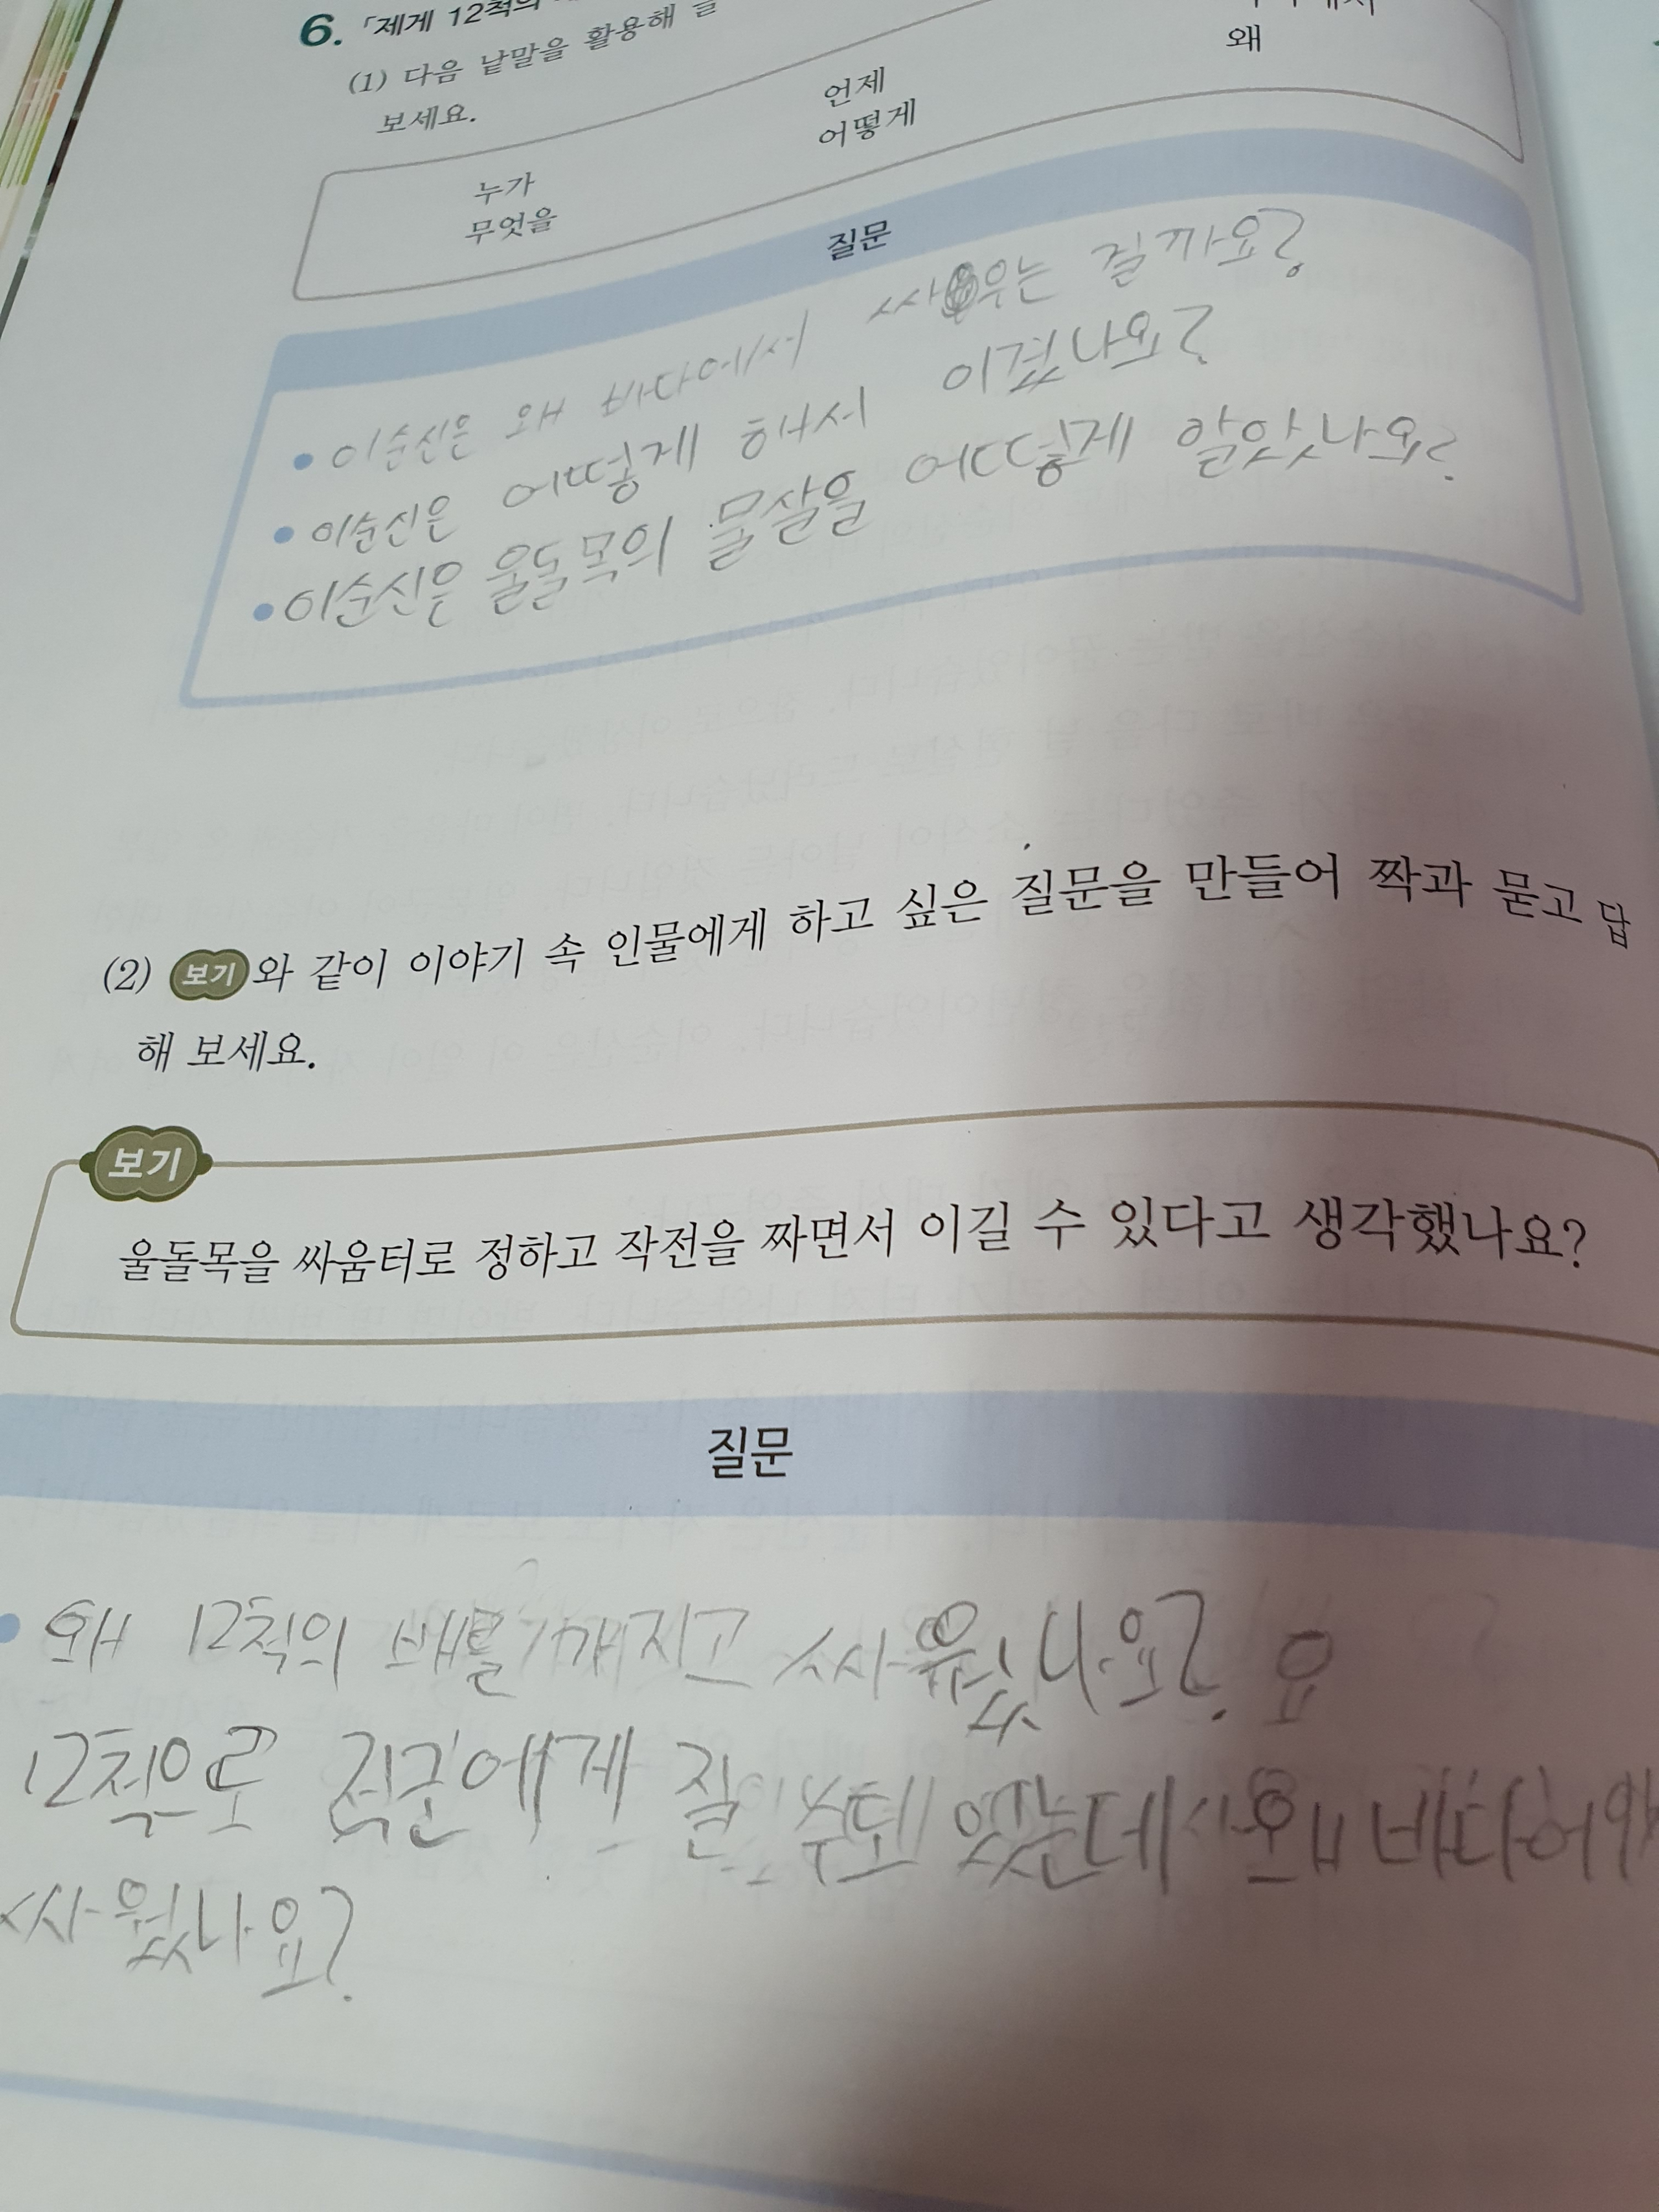 6. 「제게 12척의
(1) 다음 낱말을 활용해 글
보세요.
누가 언제
무엇을 어떻게 왜
질문
• 이순신은 왜 바다에서 싸우는 질까요?
• 이순신은 어떻게 해서 이겼나요?
• 이순신은 울돌목의 물살을 어떻게 알았나요?
(2) 보기와 같이 이야기 속 인물에게 하고 싶은 질문을 만들어 짝과 묻고 답
해 보세요.
보기
울돌목을 싸움터로 정하고 작전을 짜면서 이길 수 있다고 생각했나요?
질문
• 왜 12척의 배를 가지고 싸웠나요? 요
12척으로 적군에게 질 수도 있는데
싸웠나요?